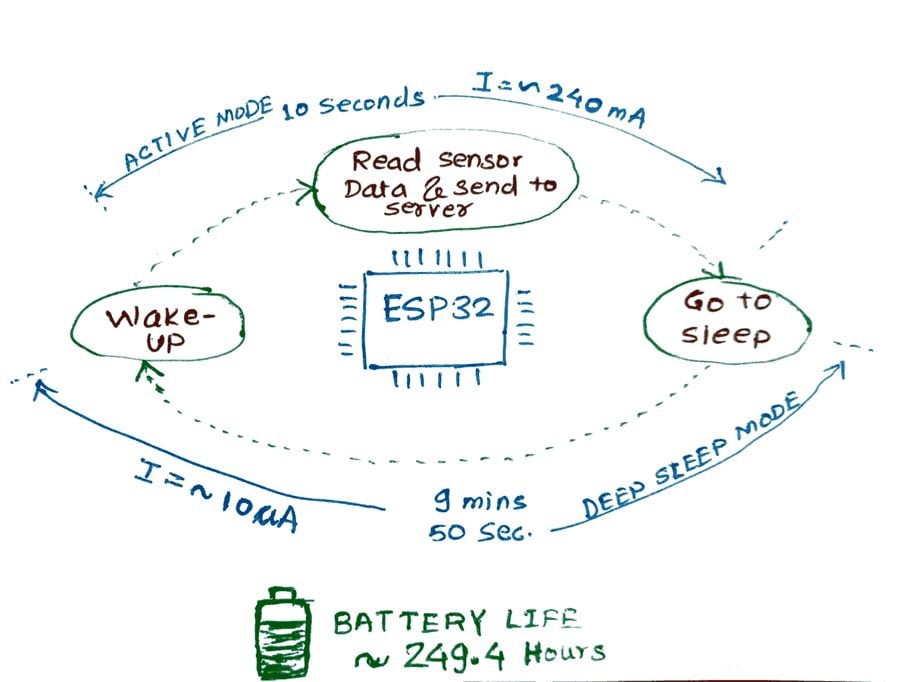 ACTIVE MODE 10 seconds I = ~ 240 mA
Read sensor
Data & send to
server
Wake-
UP
ESP32
Go to
sleep
I = ~ 10 uA
9 mins
50 sec.
DEEP SLEEP MODE
BATTERY LIFE
~ 249.4 Hours